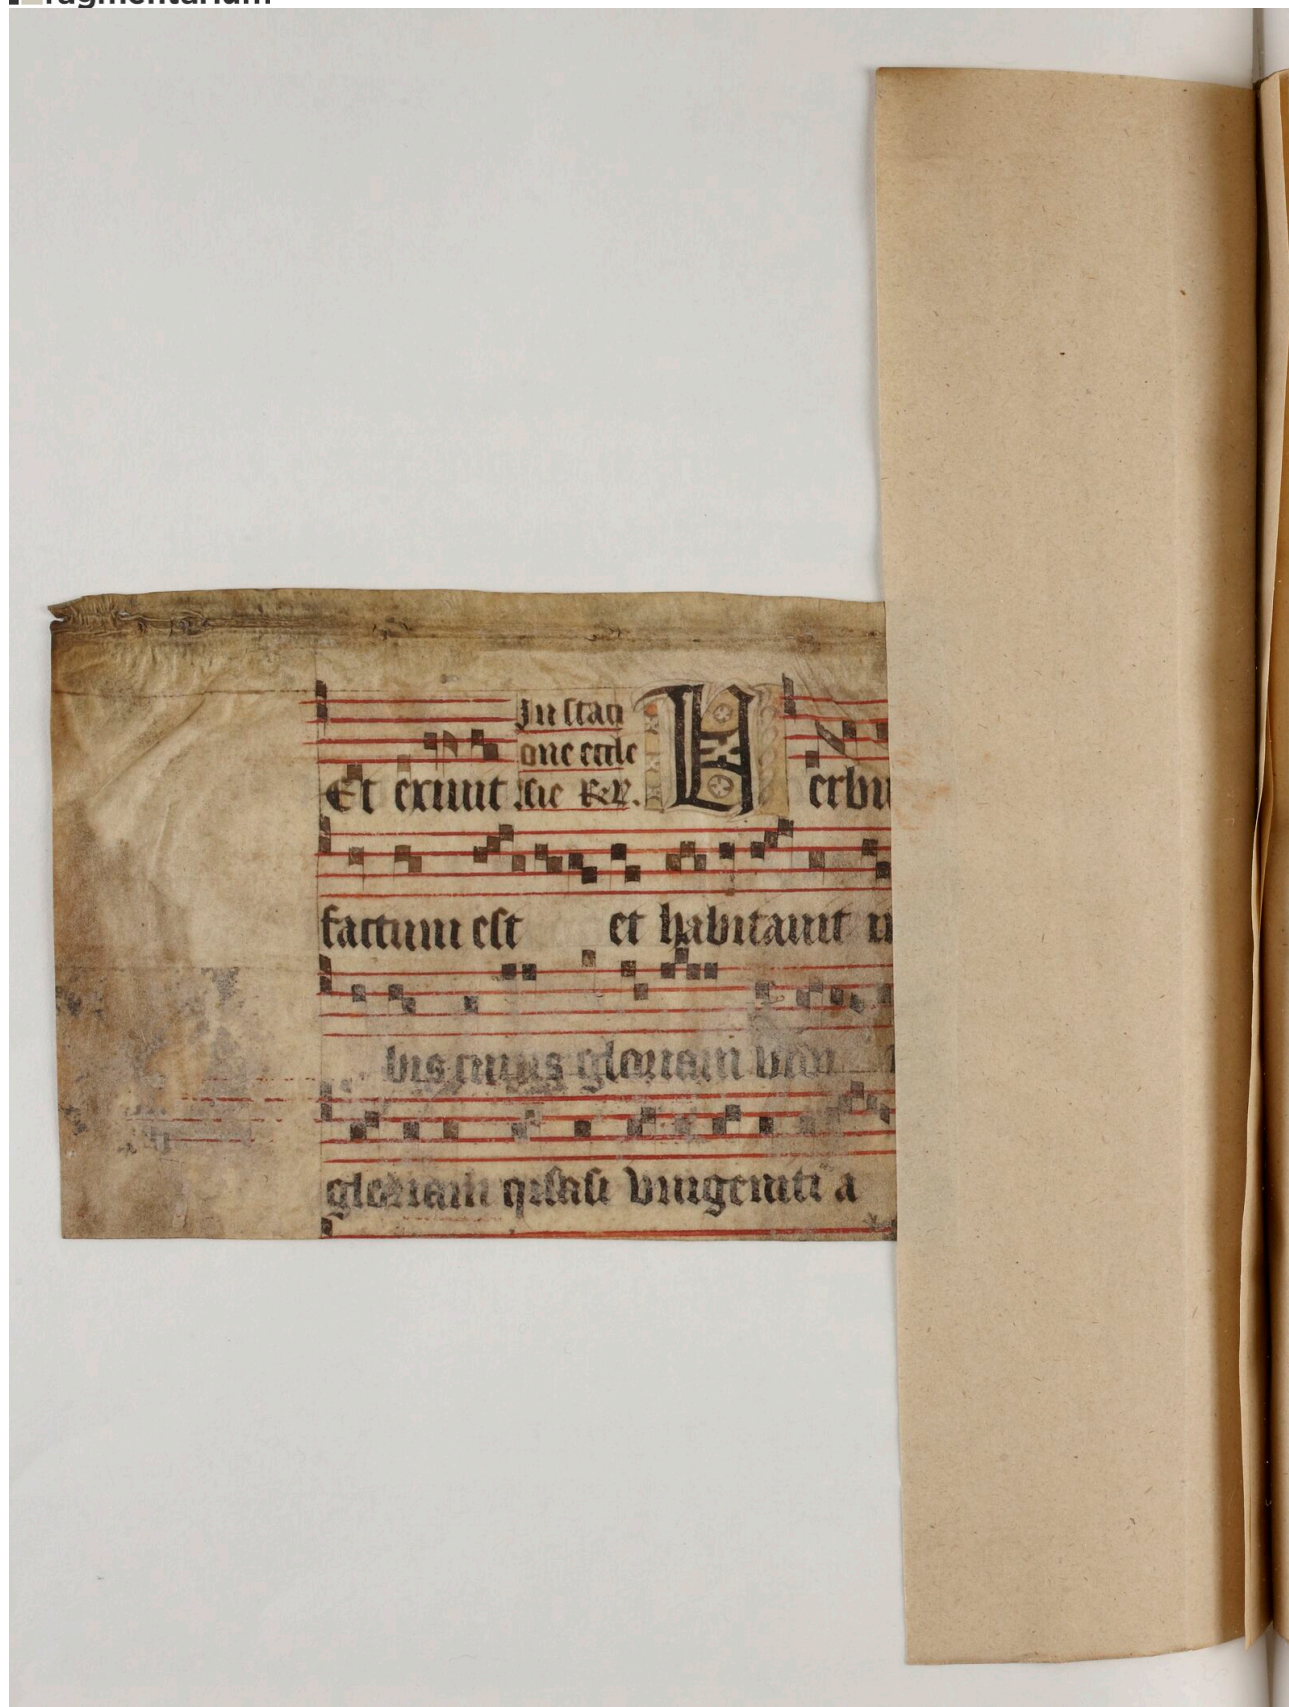 ragmentarium
Et exiuit Jn stati
one eccle
sie R. V. Verbu
factum est et habitauit i
bis cuius gloriam vidi
gloriam quasi vnigeniti a